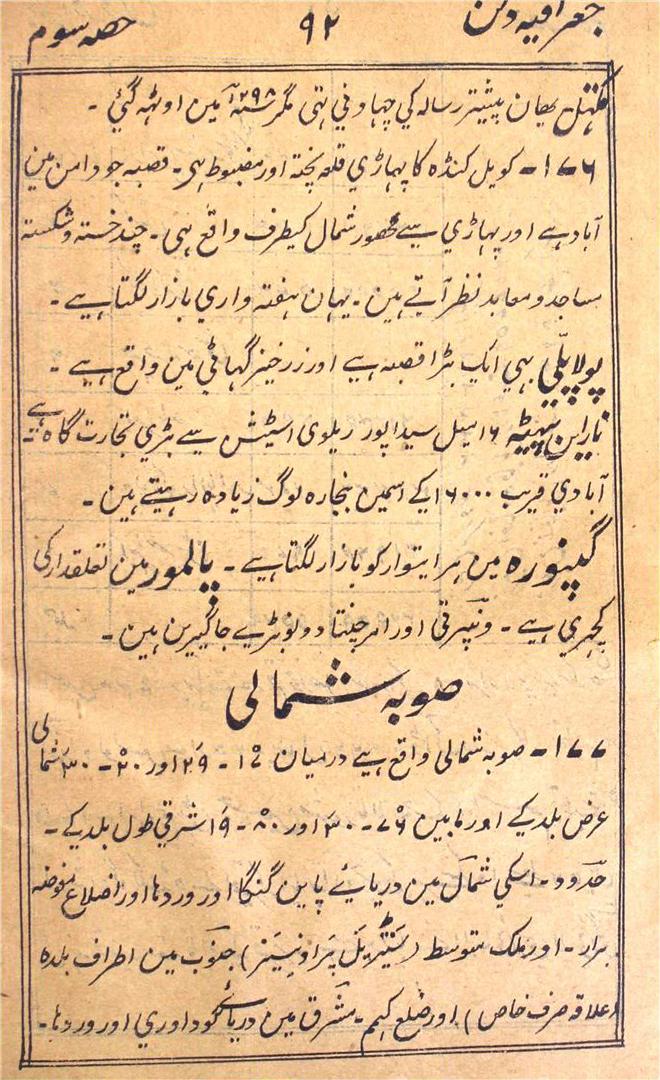 جغرافیہ دکن ۹۲ حصہ سوم
یہان پیشتر رسالہ کي چہاوني تہی مگر ۱۲۹۸ مین اوٹہہ گئی ۔
۱۷۶ ۔ کویل کنڈہ کا پہاڑي قلعہ پختہ اور مضبوط ہی ۔ قصبہ جو دامن مین
آباد ہے اور پہاڑي سے شمال کیطرف واقع ہی ۔ چند خستہ و شکستہ
مساجد و معابد نظر آتے ہین ۔ یہان ہفتہ واري بازار لگتا ہے ۔
پولاپلّي بہي ایک بڑا قصبہ ہے اور زرخیز گہاٹي مین واقع ہے ۔
ناراین پیٹہہ ۱۶ میل سیداپور ریلوی اسٹیشن سے بڑی تجارت گاہ ہے
آبادي قریب ۱۶۰۰۰ کے اسمین بنجارہ لوگ زیادہ رہتے ہین ۔
گپنورہ مین ہر ایتوار کو بازار لگتا ہے ۔ پالمور مین تعلقدار کی
کچہري ہے ۔ ونپرتی اور امرچنتا دونو بڑے جاگیرین ہین ۔
صوبہ شمالی
۱۷۷ ۔ صوبہ شمالی واقع ہے درمیان ۱۶ ۔ ۲۹ اور ۲۰ ۔ ۳۰ شمالی
عرض بلد کے اور مابین ۷۶ ۔ ۳۰ اور ۸۰ ۔ ۱۹ شرقي طول بلد کے ۔
حدود ۔ اسکی شمال مین دریائے پاین گنگا اور وردہا اور اضلاع مفوضہ
برار ۔ اور ملک متوسط (سنٹریل پراونسیز) جنوب مین اطراف بلدہ
(علاقہ صرف خاص) اور ضلع کہمم ۔ مشرق مین دریائے گوداوري اور وردہا ۔